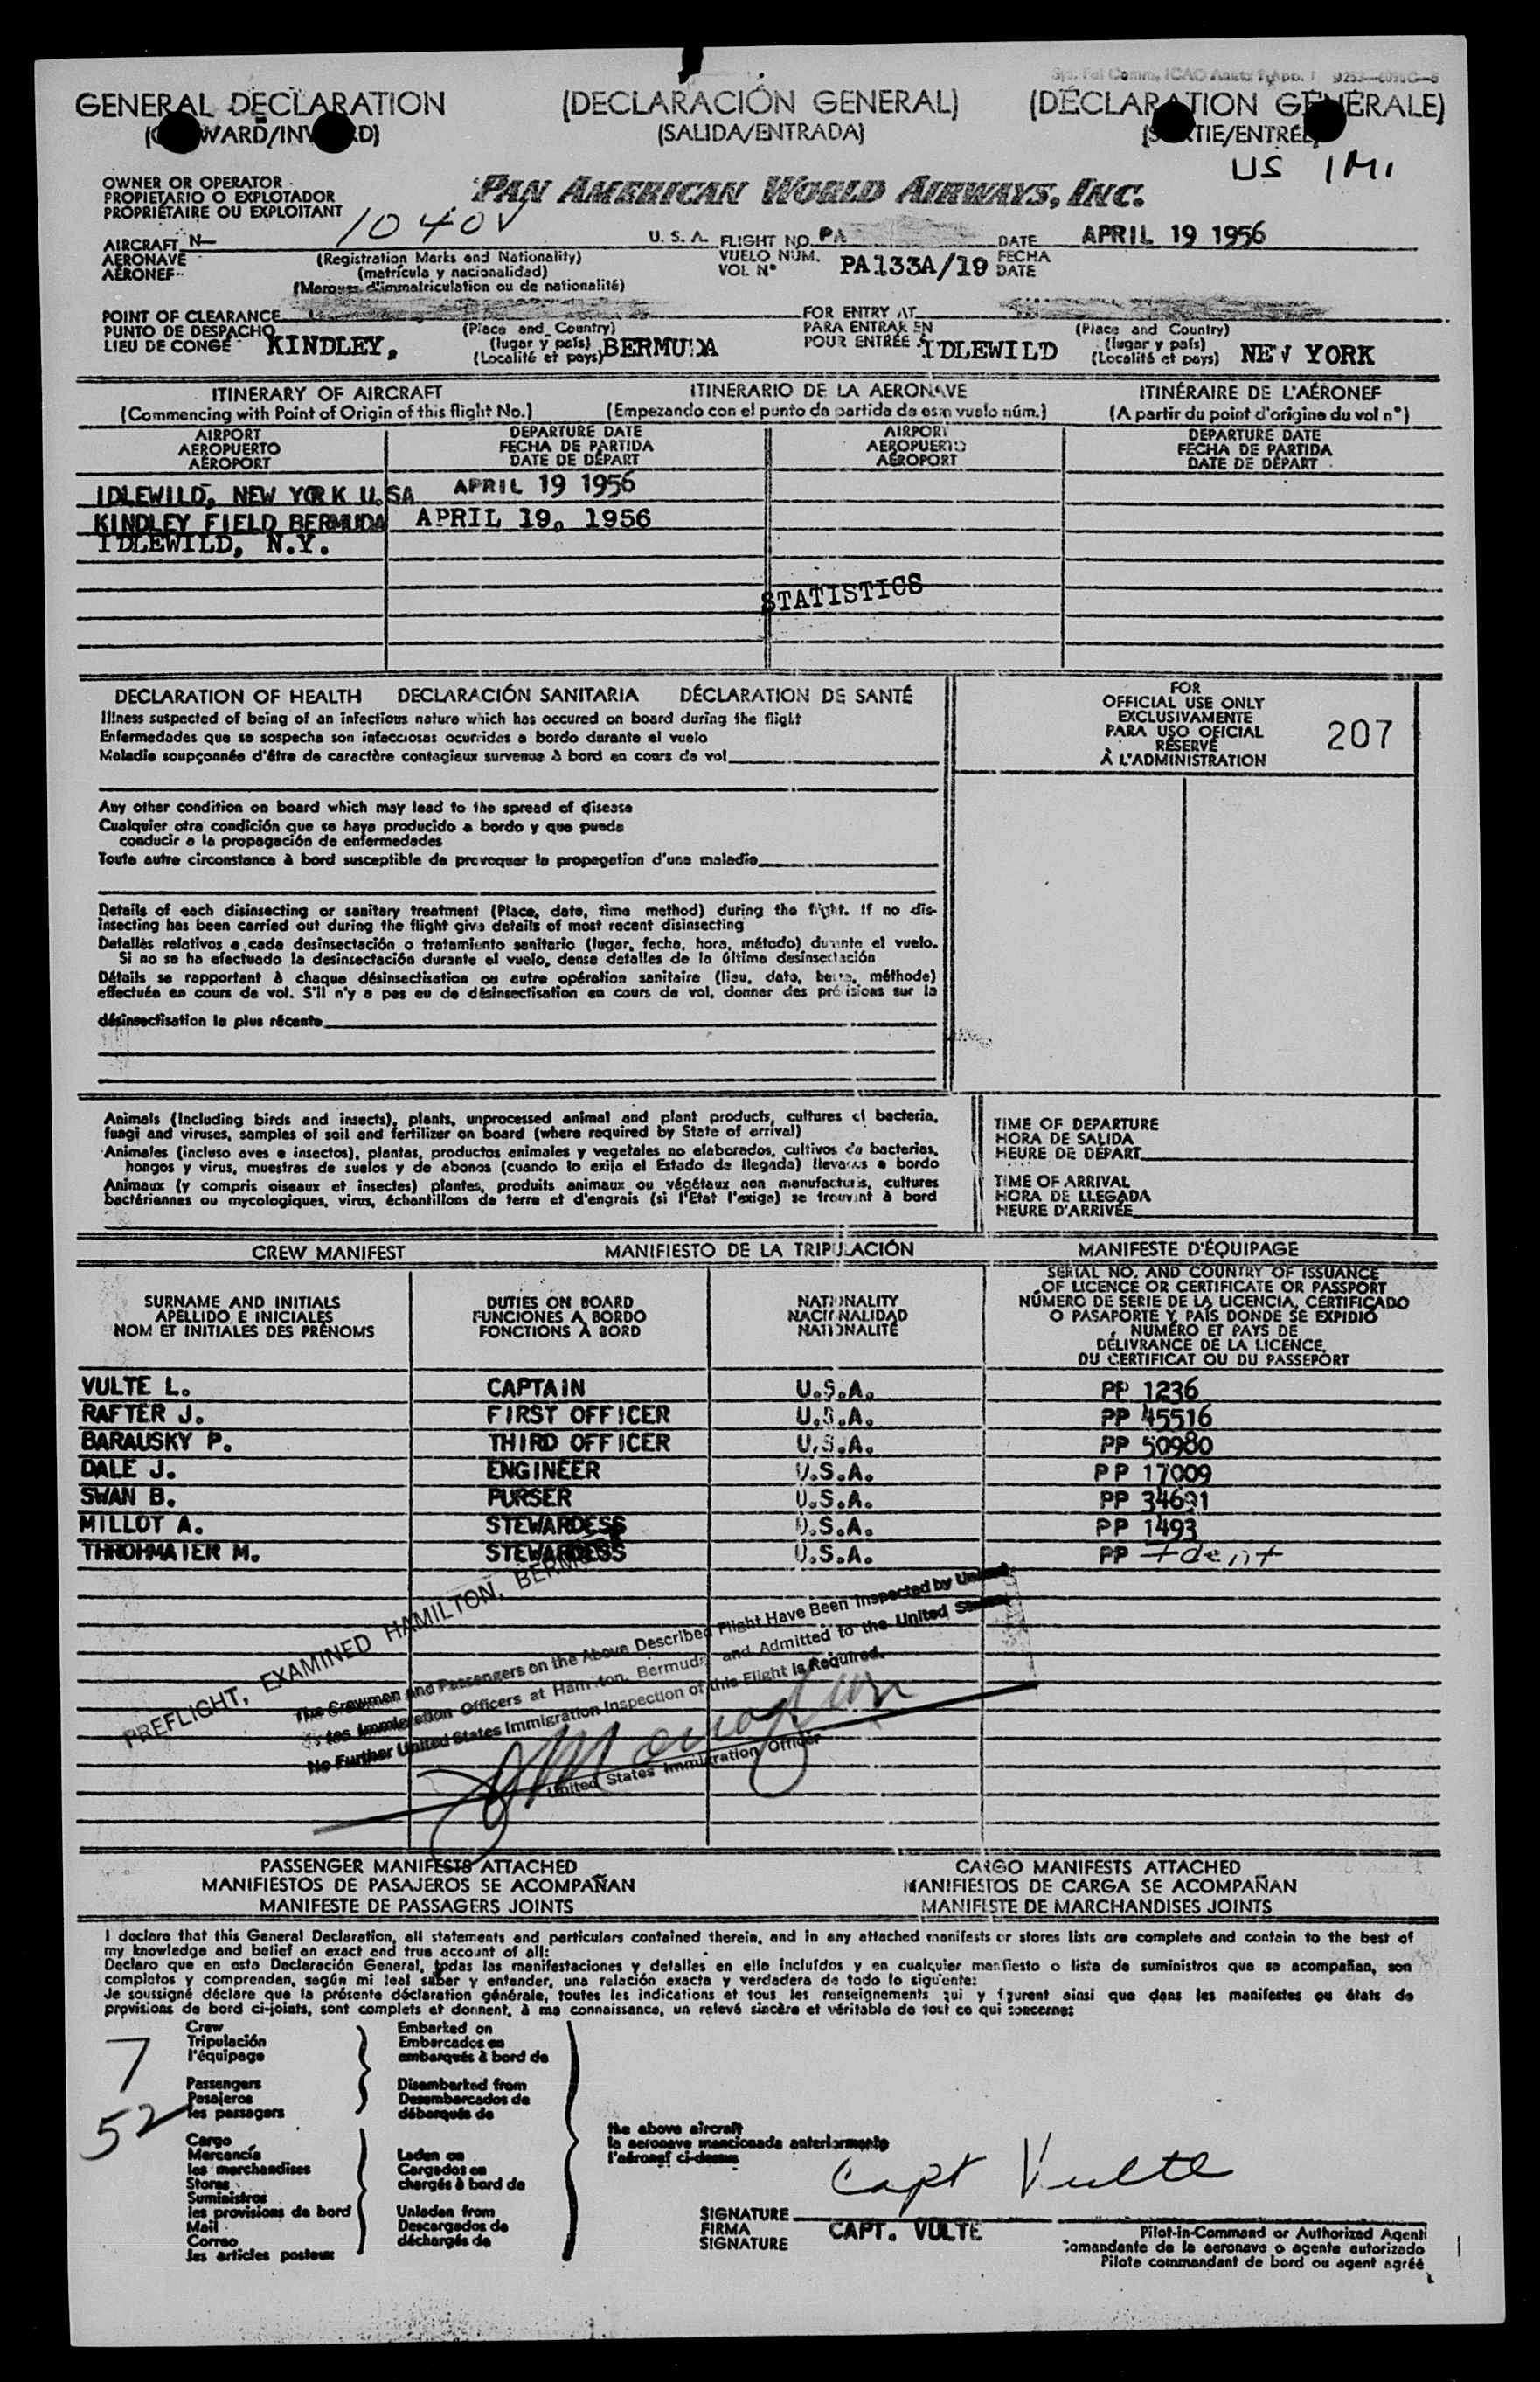 GENERAL DECLARATION (DECLARACIÓN GENERAL) (DÉCLARATION GÉNÉRALE)
(SALIDA/ENTRADA)
US IMI
OWNER OR OPERATOR
PROPIETARIO O EXPLOTADOR
PROPRIÉTAIRE OU EXPLOITANT
PAN AMERICAN WORLD AIRWAYS, INC.
AIRCRAFT N- 1040V U. S. A. FLIGHT NO. PA DATE APRIL 19 1956
AERONAVE (Registration Marks and Nationality) VUELO NÚM. PA133A/19 FECHA
AÉRONEF (matrícula y nacionalidad) VOL Nº DATE
(Marques d'immatriculation ou de nationalité)
POINT OF CLEARANCE FOR ENTRY AT
PUNTO DE DESPACHO (Place and Country) PARA ENTRAR EN (Place and Country)
LIEU DE CONGÉ KINDLEY, (lugar y país) BERMUDA POUR ENTRÉE À IDLEWILD (lugar y país) NEW YORK
(Localité et pays) (Localité et pays)
ITINERARY OF AIRCRAFT ITINERARIO DE LA AERONAVE ITINÉRAIRE DE L'AÉRONEF
(Commencing with Point of Origin of this flight No.) (Empezando con el punto de partida de este vuelo núm.) (A partir du point d'origine du vol nº)
AIRPORT DEPARTURE DATE AIRPORT DEPARTURE DATE
AEROPUERTO FECHA DE PARTIDA AEROPUERTO FECHA DE PARTIDA
AÉROPORT DATE DE DÉPART AÉROPORT DATE DE DÉPART
IDLEWILD, NEW YORK U.SA APRIL 19 1956
KINDLEY FIELD BERMUDA APRIL 19, 1956
IDLEWILD, N.Y.
STATISTICS
DECLARATION OF HEALTH DECLARACIÓN SANITARIA DÉCLARATION DE SANTÉ
Illness suspected of being of an infectious nature which has occured on board during the flight
Enfermedades que se sospecha son infecciosas ocurridas a bordo durante el vuelo
Maladie soupçonnée d'être de caractère contagieux survenue à bord en cours de vol
FOR
OFFICIAL USE ONLY
EXCLUSIVAMENTE
PARA USO OFICIAL
RÉSERVÉ
À L'ADMINISTRATION
207
Any other condition on board which may lead to the spread of disease
Cualquier otra condición que se haya producido a bordo y que pueda
conducir a la propagación de enfermedades
Toute autre circonstance à bord susceptible de provoquer la propagation d'une maladie
Details of each disinsecting or sanitary treatment (Place, date, time method) during the flight. If no dis-
insecting has been carried out during the flight give details of most recent disinsecting
Detalles relativos a cada desinsectación o tratamiento sanitario (lugar, fecha, hora, método) durante el vuelo.
Si no se ha efectuado la desinsectación durante el vuelo, dense detalles de la última desinsectación
Détails se rapportant à chaque désinsectisation ou autre opération sanitaire (lieu, date, heure, méthode)
effectuée en cours de vol. S'il n'y a pas eu de désinsectisation en cours de vol, donner des précisions sur la
désinsectisation la plus récente
Animals (Including birds and insects), plants, unprocessed animal and plant products, cultures of bacteria,
fungi and viruses, samples of soil and fertilizer on board (where required by State of arrival)
Animales (incluso aves e insectos), plantas, productos animales y vegetales no elaborados, cultivos de bacterias,
hongos y virus, muestras de suelos y de abonos (cuando lo exija el Estado de llegada) llevados a bordo
Animaux (y compris oiseaux et insectes) plantes, produits animaux ou végétaux non manufacturés, cultures
bactériennes ou mycologiques, virus, échantillons de terre et d'engrais (si l'Etat l'exige) se trouvant à bord
TIME OF DEPARTURE
HORA DE SALIDA
HEURE DE DÉPART
TIME OF ARRIVAL
HORA DE LLEGADA
HEURE D'ARRIVÉE
CREW MANIFEST MANIFIESTO DE LA TRIPULACIÓN MANIFESTE D'ÉQUIPAGE
SURNAME AND INITIALS
APELLIDO E INICIALES
NOM ET INITIALES DES PRÉNOMS
DUTIES ON BOARD
FUNCIONES A BORDO
FONCTIONS À BORD
NATIONALITY
NACIONALIDAD
NATIONALITÉ
SERIAL NO. AND COUNTRY OF ISSUANCE
OF LICENCE OR CERTIFICATE OR PASSPORT
NÚMERO DE SERIE DE LA LICENCIA, CERTIFICADO
O PASAPORTE Y PAÍS DONDE SE EXPIDIÓ
NUMÉRO ET PAYS DE
DÉLIVRANCE DE LA LICENCE,
DU CERTIFICAT OU DU PASSEPORT
VULTE L. CAPTAIN U.S.A. PP 1236
RAFTER J. FIRST OFFICER U.S.A. PP 45516
BARAUSKY P. THIRD OFFICER U.S.A. PP 50980
DALE J. ENGINEER U.S.A. PP 17009
SWAN B. PURSER U.S.A. PP 34691
MILLOT A. STEWARDESS U.S.A. PP 1493
THROHMAIER M. STEWARDESS U.S.A. PP Ident
PREFLIGHT, EXAMINED HAMILTON, BERMUDA
The Crewmen and Passengers on the Above Described Flight Have Been Inspected by United
States Immigration Officers at Hamilton, Bermuda and Admitted to the United States
No Further United States Immigration Inspection of this Flight Is Required.
United States Immigration Officer
PASSENGER MANIFESTS ATTACHED CARGO MANIFESTS ATTACHED
MANIFIESTOS DE PASAJEROS SE ACOMPAÑAN MANIFIESTOS DE CARGA SE ACOMPAÑAN
MANIFESTE DE PASSAGERS JOINTS MANIFESTE DE MARCHANDISES JOINTS
I declare that this General Declaration, all statements and particulars contained therein, and in any attached manifests or stores lists are complete and contain to the best of
my knowledge and belief an exact and true account of all:
Declaro que en esta Declaración General, todas las manifestaciones y detalles en ella incluídos y en cualquier manifiesto o lista de suministros que se acompañan, son
completos y comprenden, según mi leal saber y entender, una relación exacta y verdadera de todo lo siguiente:
Je soussigné déclare que la présente déclaration générale, toutes les indications et tous les renseignements qui y figurent ainsi que dans les manifestes ou états de
provisions de bord ci-joints, sont complets et donnent, à ma connaissance, un relevé sincère et véritable de tout ce qui concerne:
7
Crew
Tripulación
l'équipage
Embarked on
Embarcados en
embarqués à bord de
52
Passengers
Pasajeros
les passagers
Disembarked from
Desembarcados de
débarqués de
Cargo
Mercancía
les marchandises
Stores
Suministros
les provisions de bord
Mail
Correo
les articles postaux
Laden on
Cargados en
chargés à bord de
Unladen from
Descargados de
déchargés de
the above aircraft
la aeronave mencionada anteriormente
l'aéronef ci-dessus
Capt Vulte
SIGNATURE
FIRMA CAPT. VULTE
SIGNATURE
Pilot-in-Command or Authorized Agent
Comandante de la aeronave o agente autorizado
Pilote commandant de bord ou agent agréé